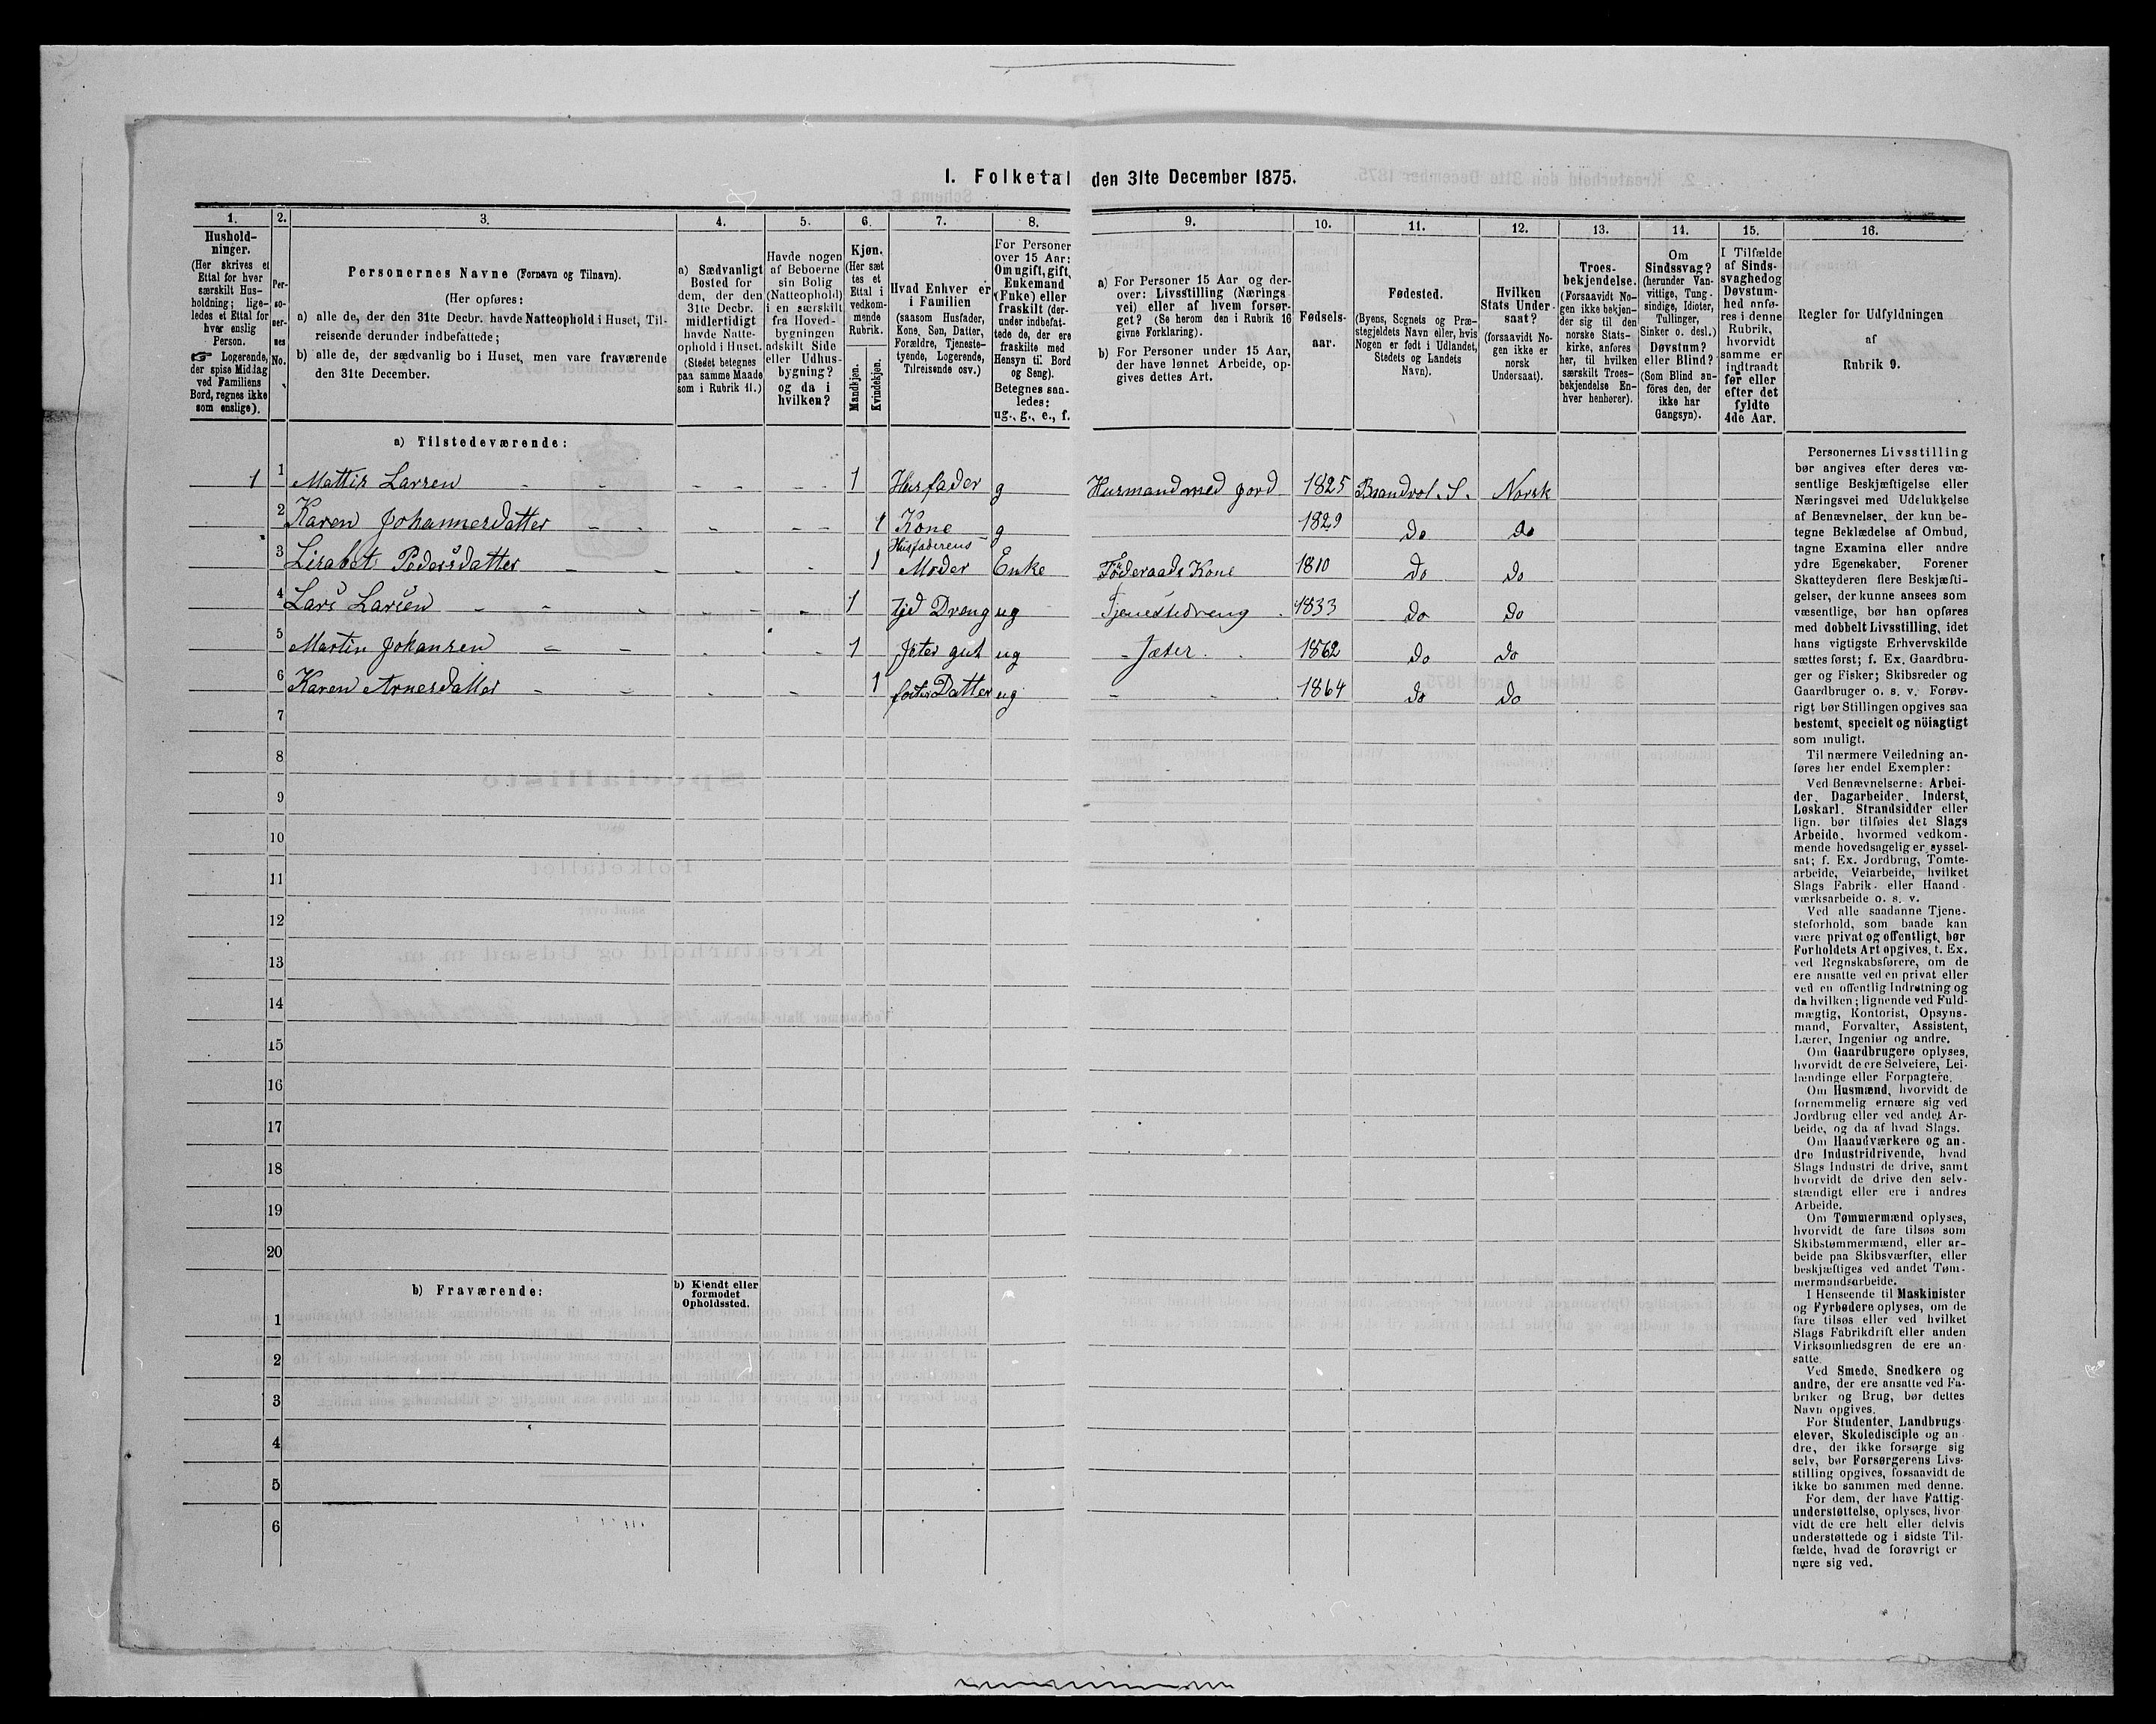 1. Folketal den 31te December 1875.
1. 2. 3. 4. 5. 6. 7. 8. 9. 10. 11. 12. 13. 14. 15. 16.
Hushold-
ninger.
(Her skrives et
Ettal for hver
særskilt Hus-
holdning; lige-
ledes et Ettal for
hver enslig
Person.
☞ Logerende,
der spise Middag
ved Familiens
Bord, regnes ikke
som enslige).
Per-
so-
ner-
nes
No.
Personernes Navne (Fornavn og Tilnavn).
(Her opføres:
a) alle de, der den 31te Decbr. havde Natteophold i Huset, Til-
reisende derunder indbefattede;
b) alle de, der sædvanlig bo i Huset, men vare fraværende
den 31te December.
a) Sædvanligt
Bosted for
dem, der den
31te Decbr.
midlertidigt
havde Natte-
ophold i Huset.
(Stedet betegnes
paa samme Maade
som i Rubrik 11.)
Havde nogen
af Beboerne
sin Bolig
(Natteophold)
i en særskilt
fra Hoved-
bygningen
adskilt Side
eller Udhus-
bygning?
og da i
hvilken?
Kjøn.
(Her sæt
tes et
Ettal i
vedkom-
mende
Rubrik.
Mandkjøn.
Kvindekjøn.
Hvad Enhver er
i Familien
(saasom Husfader,
Kone, Søn, Datter,
Forældre, Tjeneste-
tyende, Logerende,
Tilreisende osv.)
For Personer
over 15 Aar:
Om ugift, gift,
Enkemand
(Enke) eller
fraskilt (der-
under indbefat-
tede de, der ere
fraskilte med
Hensyn til Bord
og Seng).
Betegnes saa-
ledes:
ug., g., e., f.
a) For Personer 15 Aar og der-
over: Livsstilling (Nærings
vei) eller af hvem forsør-
get? (Se herom den i Rubrik 16
givne Forklaring).
b) For Personer under 15 Aar,
der have lønnet Arbeide, op-
gives dettes Art.
Fødsels-
aar.
Fødested.
(Byens, Sognets og Præ-
stegjeldets Navn eller, hvis
Nogen er født i Udlandet,
Stedets og Landets
Navn).
Hvilken
Stats Under-
saat?
(forsaavidt No-
gen ikke er
norsk
Undersaat).
Troes-
bekjendelse.
(Forsaavidt No-
gen ikke bekjen-
der sig til den
norske Stats-
kirke, anføres
her, til hvilken
særskilt Troes-
bekjendelse En-
hver henhører).
Om
Sindssvag?
(herunder Van-
vittige, Tung-
sindige, Idioter,
Tullinger,
Sinker o. desl.)
Døvstum?
eller Blind?
(Som Blind an-
føres den, der
ikke har
Gangsyn).
I Tilfælde
af Sinds-
svaghed og
Døvstum-
hed anfø-
res i denne
Rubrik,
hvorvidt
samme er
indtraadt
før eller
efter det
fyldte
4de Aar.
Regler for Udfyldningen
af
Rubrik 9.
a) Tilstedeværende:
1 1 Mattis Larsen 1 Husfader g Husmand med jord 1825 Brandvol. S. Norsk
2 Karen Johannesdatter 1 Kone g 1829 do do
3 Lisabet Pedersdatter 1 Husfaderens Moder Enke Føderaads Kone 1810 do do
4 Lars Larsen 1 tjs Dreng ug Tjenestedreng 1833 do do
5 Martin Johansen 1 Jeter gut ug Jæter 1862 do do
6 Karen Arnesdatter 1 foster Datter ug 1864 do do
7
8
9
10
11
12
13
14
15
16
17
18
19
20
b) Fraværende:
b) Kjendt eller
formodet
Opholdssted.
1
2
3
4
5
6
Personernes Livsstilling
bør angives efter deres væ-
sentlige Beskjæftigelse eller
Næringsvei med Udelukkelse
af Benævnelser, der kun be-
tegne Beklædelse af Ombud,
tagne Examina eller andre
ydre Egenskaber. Forener
Skatteyderen flere Beskjæfti-
gelser, der kunne ansees som
væsentlige, bør han opføres
med dobbelt Livsstilling, idet
hans vigtigste Erhvervskilde
sættes først; f. Ex. Gaardbru-
ger og Fisker; Skibsreder og
Gaardbruger o. s. v. Forøv-
rigt bør Stillingen opgives saa
bestemt, specielt og nöiagtigt
som muligt.
Til nærmere Veiledning an-
føres her endel Exempler:
Ved Benævnelserne: Arbei-
der, Dagarbeider, Inderst,
Løskarl, Strandsidder eller
lign. bør tilføies det Slags
Arbeide, hvormed vedkom-
mende hovedsagelig er syssel-
sat; f. Ex. Jordbrug, Tomte-
arbeide, Veiarbeide, hvilket
Slags Fabrik- eller Haand-
værksarbeide o. s. v.
Ved alle saadanne Tjene-
steforhold, som baade kan
være privat og offentligt, bør
Forholdets Art opgives, t. Ex.
ved Regnskabsførere, om de
ere ansatte ved en privat eller
ved en offentlig Indretning og
da hvilken; lignende ved Fuld-
mægtig, Kontorist, Opsyns-
mand, Forvalter, Assistent,
Lærer, Ingeniør og andre.
Om Gaardbrugere oplyses,
hvorvidt de ere Selveiere, Lei-
lændinge eller Forpagtere.
Om Husmænd, hvorvidt de
fornemmelig ernære sig ved
Jordbrug eller ved andet Ar-
beide, og da af hvad Slags.
Om Haandværkere og an-
dre Industridrivende, hvad
Slags Industri de drive, samt
hvorvidt de drive den selv-
stændigt eller ere i andres
Arbeide.
Om Tømmermænd oplyses,
hvorvidt de fare tilsøs som
Skibstømmermænd, eller ar-
beide paa Skibsværfter, eller
beskjæftiges ved andet Tøm-
mermandsarbeide.
I Henseende til Maskinister
og Fyrbødere oplyses, om de
fare tilsøs eller ved hvilket
Slags Fabrikdrift eller anden
Virksomhedsgren de ere an-
satte.
Ved Smede, Snedkere og
andre, der ere ansatte ved Fa-
briker og Brug, bør dettes
Navn opgives.
For Studenter, Landbrugs-
elever, Skoledisciple og an-
dre, der ikke forsørge sig
selv, bør Forsørgerens Livs-
stilling opgives, forsaavidt de
ikke bo sammen med denne.
For dem, der have Fattig-
understøttelse, oplyses, hvor-
vidt de ere helt eller delvis
understøttede og i sidste Til-
fælde, hvad de forøvrigt er-
nære sig ved.